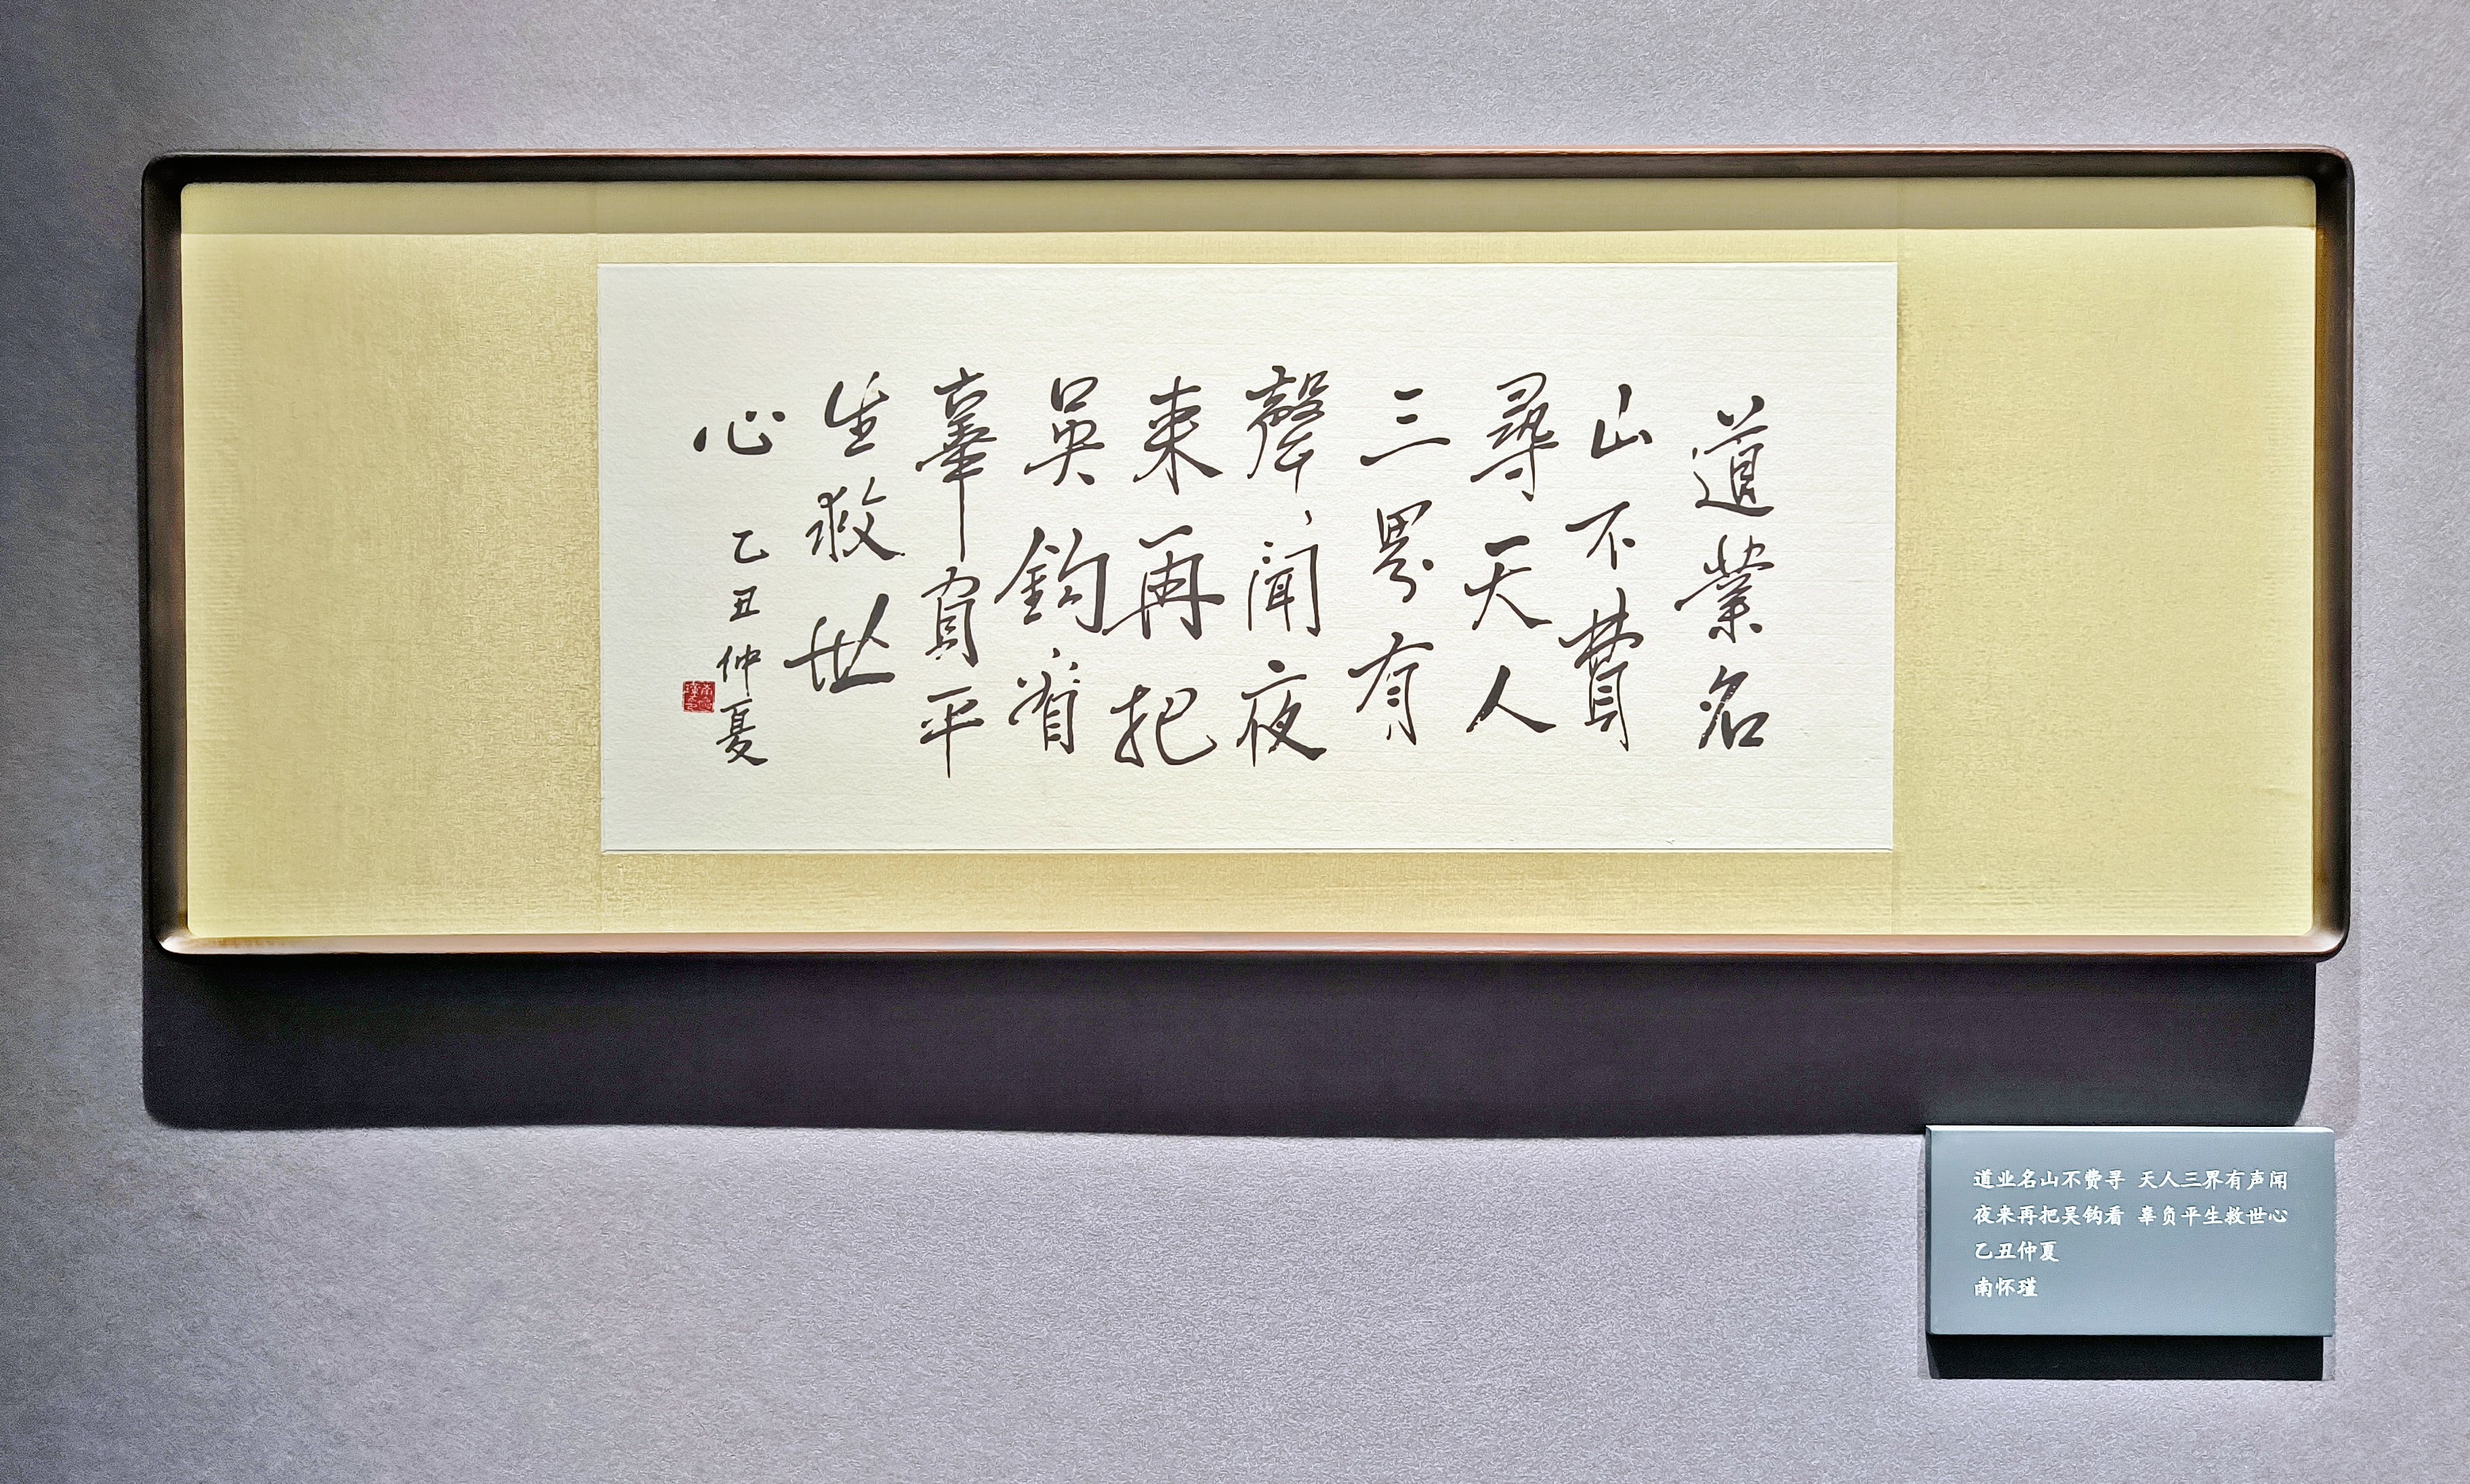 道業名
山不費
尋天人
三界有
聲聞夜
来再把
吴鈎看
辜負平
生救世
心
乙丑仲夏
道业名山不费寻 天人三界有声闻
夜来再把吴钩看 辜负平生救世心
乙丑仲夏
南怀瑾